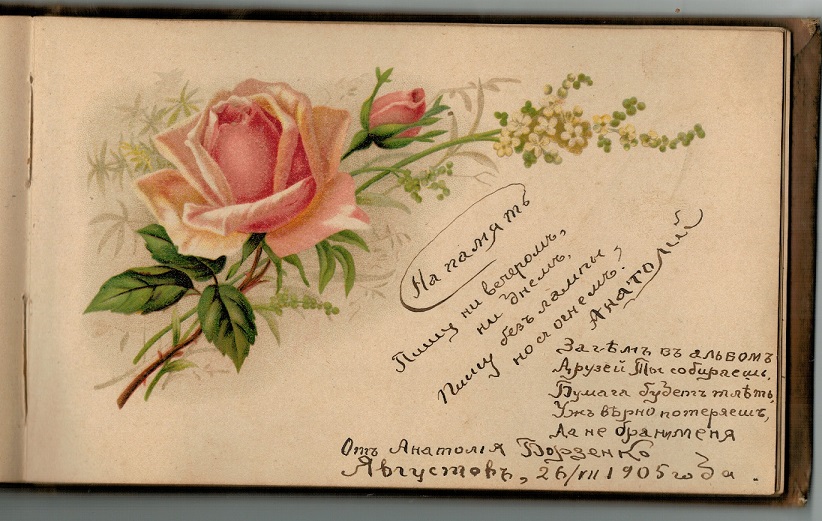 На память
Пишу ни вечеромъ,
ни днемъ,
Пишу безъ лампы,
но съ огнемъ.
Анатолій
Зачѣмъ въ альбомъ
Друзей Ты собираешь,
Бумага будетъ тлѣть,
Ужъ вѣрно потеряешь,
Да не брани меня
Отъ Анатолія Борзенко
Августовъ, 26/VII 1905 года.